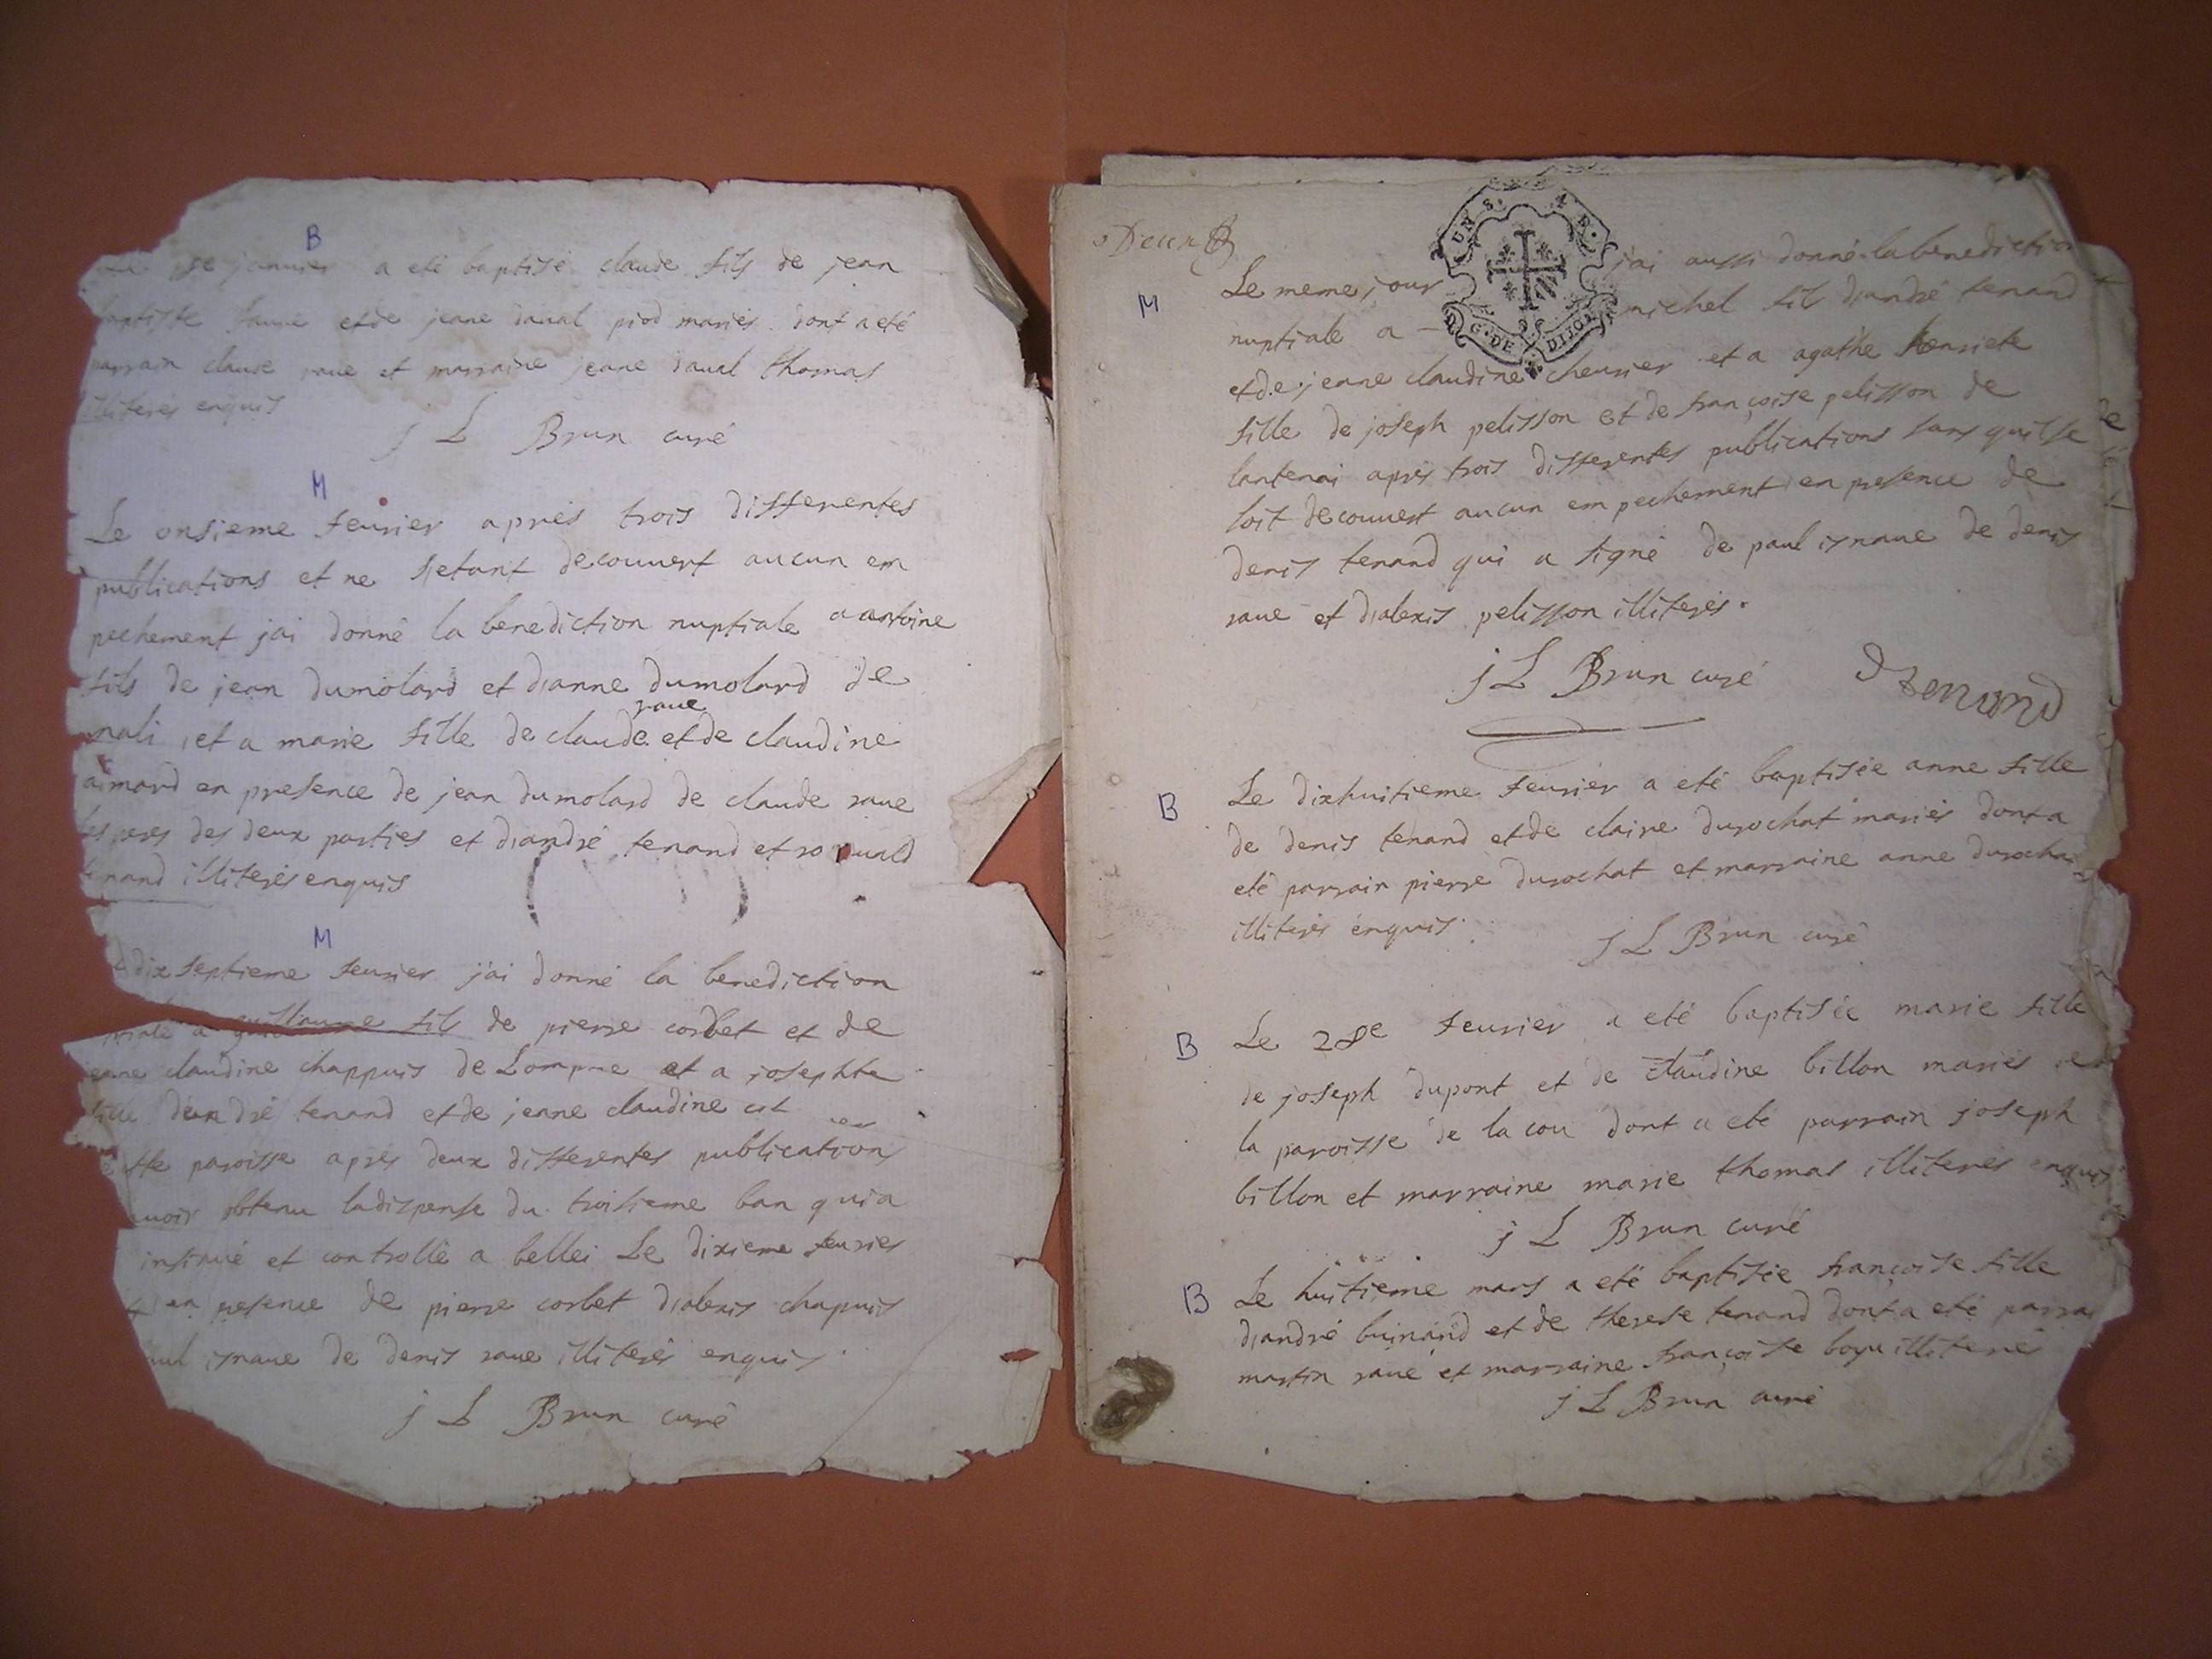 B
janvier a eté baptisé claude fils de jean
baptiste et de jeane daual piod mariés dont a eté
parrain claude raue et marraine jeane daual thomas
illiterés enquis
j L Brun curé
M
Le onsieme feurier apriés trois differentes
publications et ne setant decouuert aucun em
pechement jai donné la benediction nuptiale a antoine
fils de jean dumolard et dianne dumolard de
nali et a marie fille de claude raue et de claudine
aimard en presence de jean dumolard de claude raue
les peres des deux parties et diandré tenand et romuald
tenand illiterés enquis
M
dix septieme feurier j'ai donné la benediction
guillaume fils de pierre corbet et de
jeane claudine chappuis de Lompne et a josephte
fille diandré tenand et de jeane claudine
cette paroisse aprés deux differentes publications
auoir obtenu la dispense du troisieme ban qui a
insinué et controllé a bellei Le dixieme feurier
en presence de pierre corbet dialexis chapuis
isnaue de denis raue illiterés enquis
j L Brun curé
Deux
UN S. 4 D.
G. DE DIJON
M
Le meme jour jai aussi donné la benediction
nuptiale a michel fils diandré tenand
et de jeane claudine cheurier et a agathe henriete
fille de joseph pelisson et de françoise pelisson de
lantenai aprés trois differentes publications sans quil se
soit decouuert aucun empechement en presence de
denis tenand qui a signé de paul isnaue de denis
raue et dialexis pelisson illiterés.
j L Brun curé D tenand
B
Le dixhuitieme feurier a eté baptisée anne fille
de denis tenand et de claire durochat mariés dont a
eté parrain pierre durochat et marraine anne durochat
illiterés enquis.
j L Brun curé
B
Le 28e feurier a eté baptisée marie fille
de joseph dupont et de claudine billon mariés de
la paroisse de la cou dont a eté parrain joseph
billon et marraine marie thomas illiterés enquis
j L Brun curé
B
Le huitieme mars a eté baptisée françoise fille
diandré buinand et de therese tenand dont a eté parrai
martin raue et marraine françoise illiteré
j L Brun curé